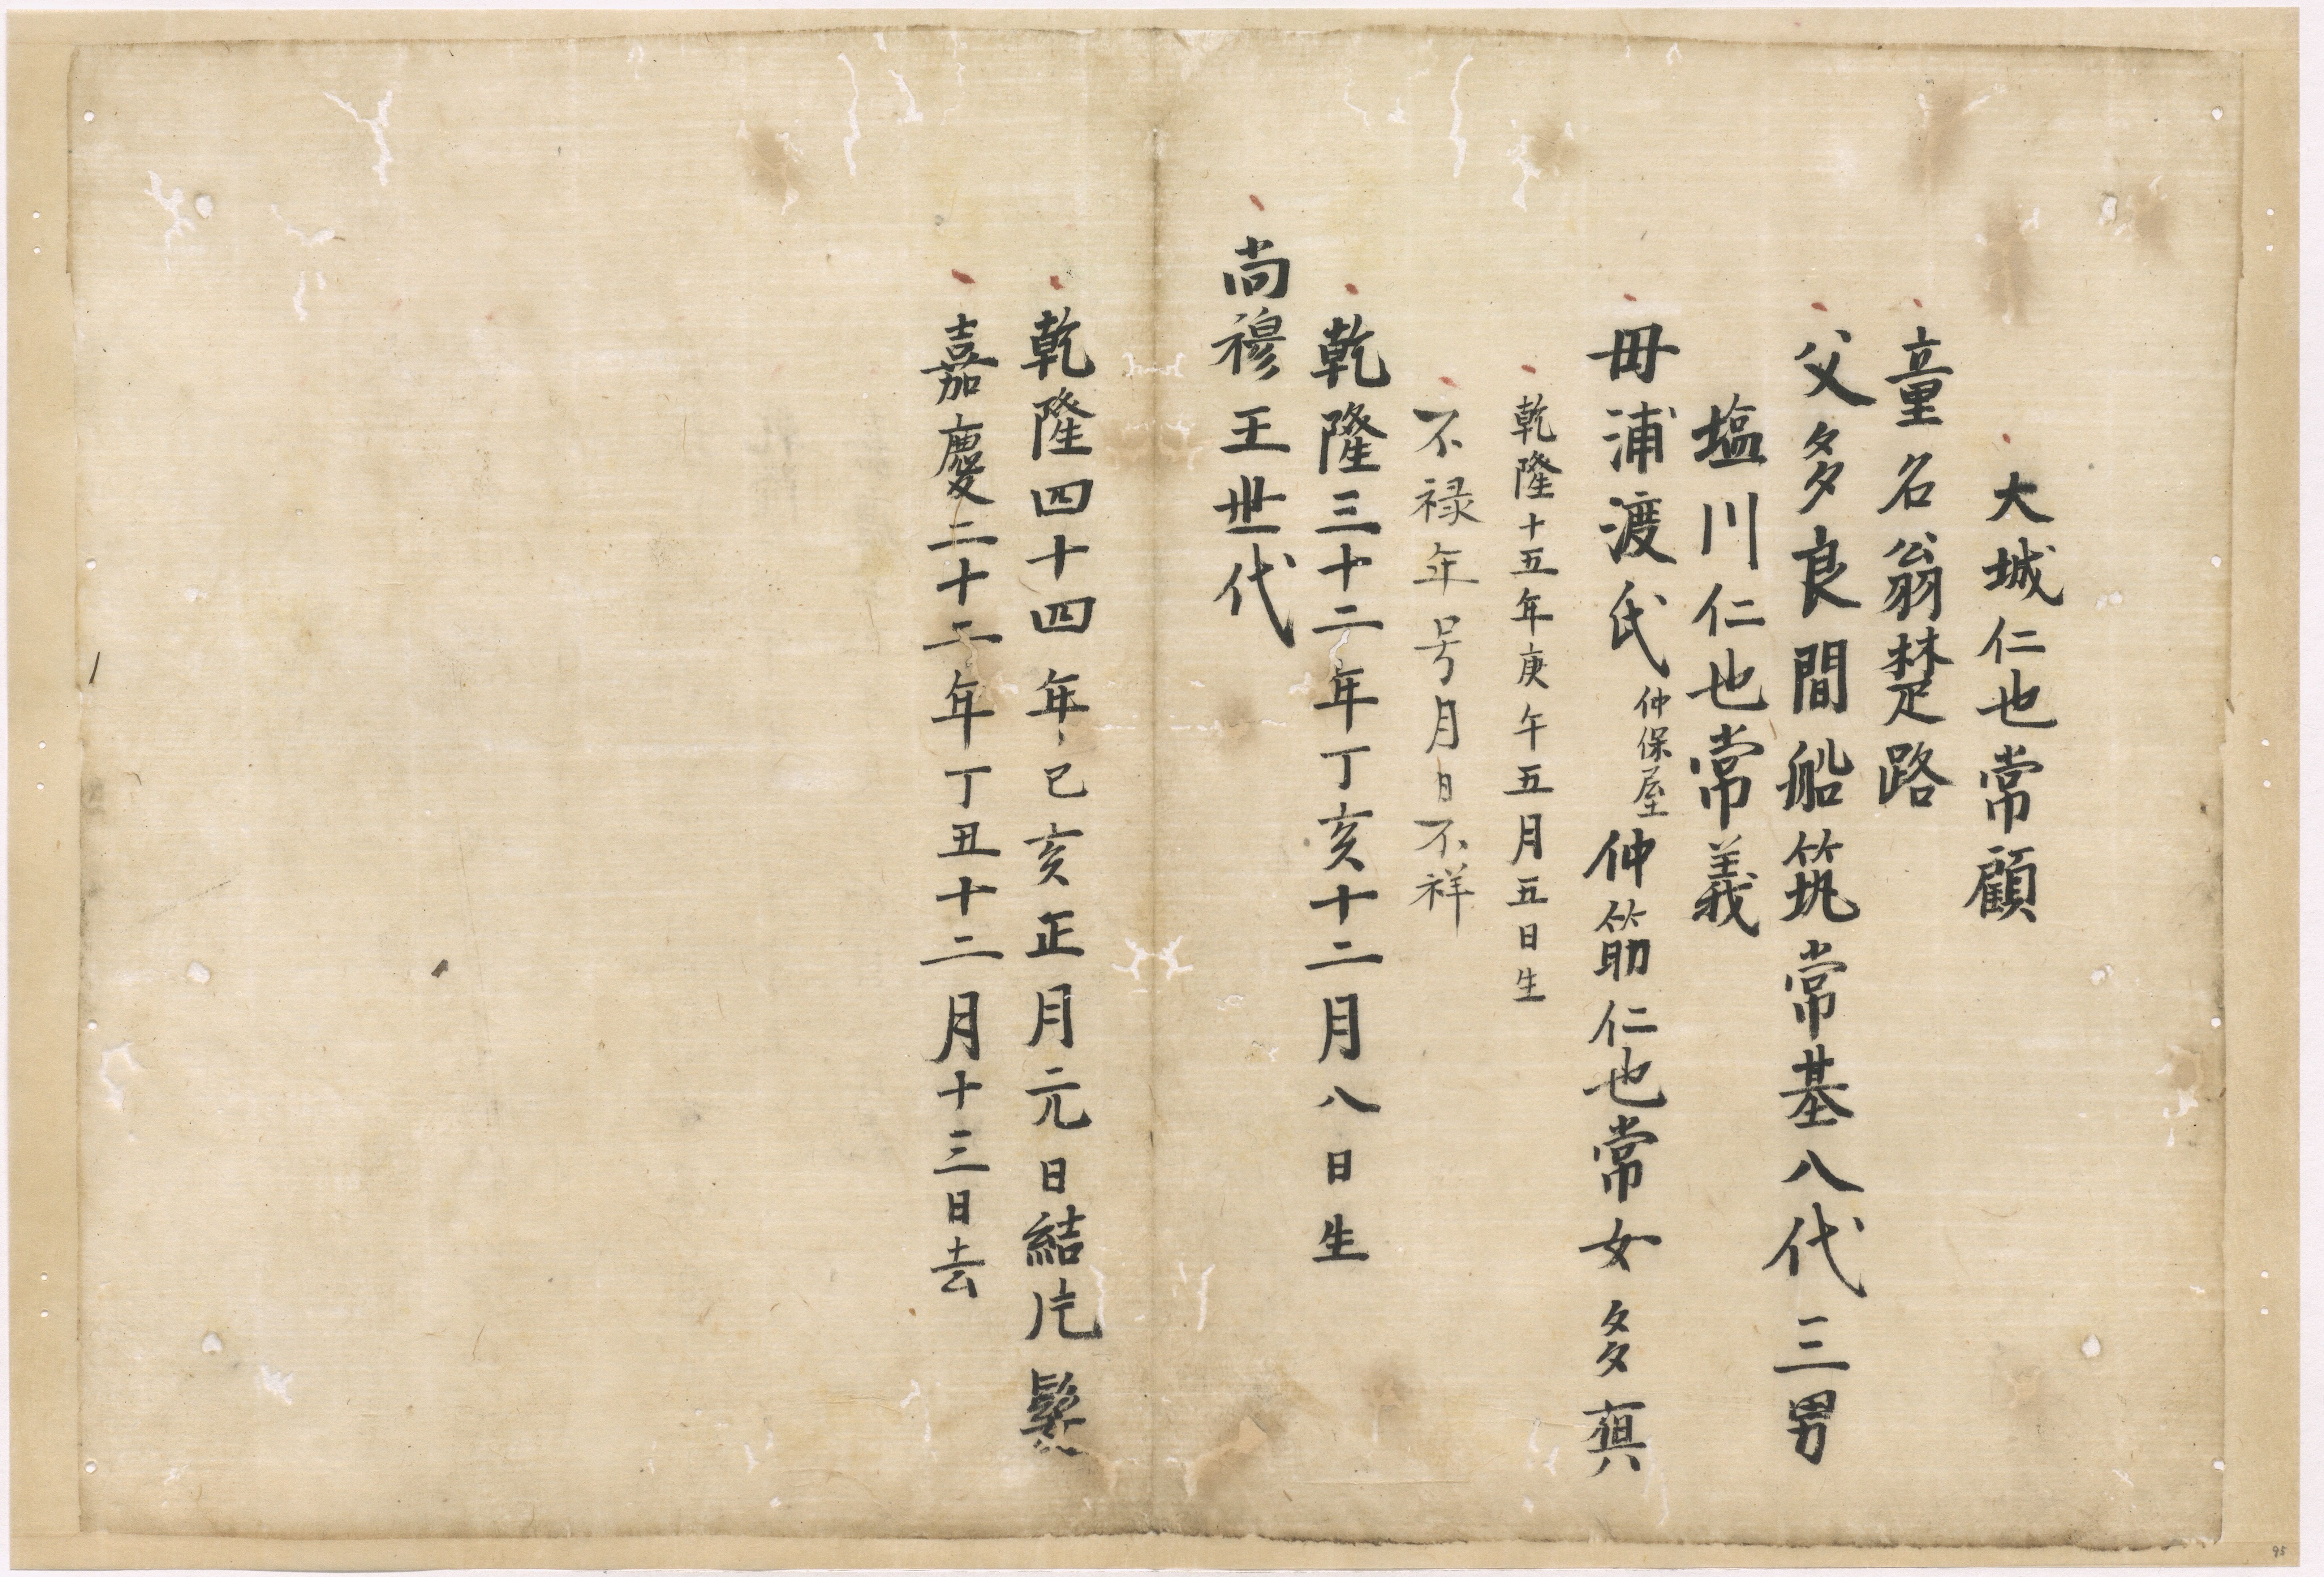 大城仁也常顧
童名翁楚路
父多良間船筑常基八代三男
塩川仁也常義
母浦渡氏仲保屋仲筋仁也常女多真
乾隆十五年庚午五月五日生
不禄年号月日不祥
乾隆三十二年丁亥十二月八日生
尚穆王世代
乾隆四十四年己亥正月元日結片髪
嘉慶二十二年丁丑十二月十三日去
95